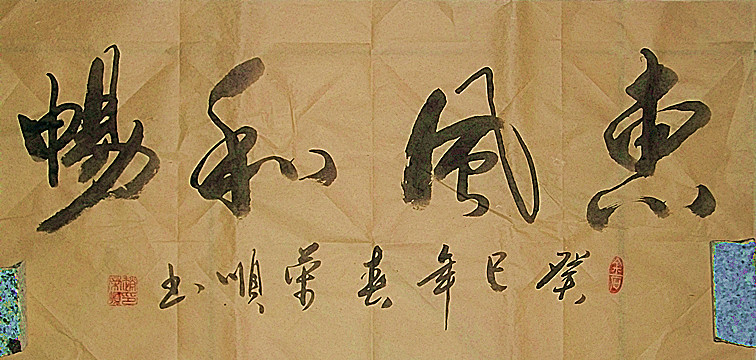 惠風和暢
癸巳年春荣順书